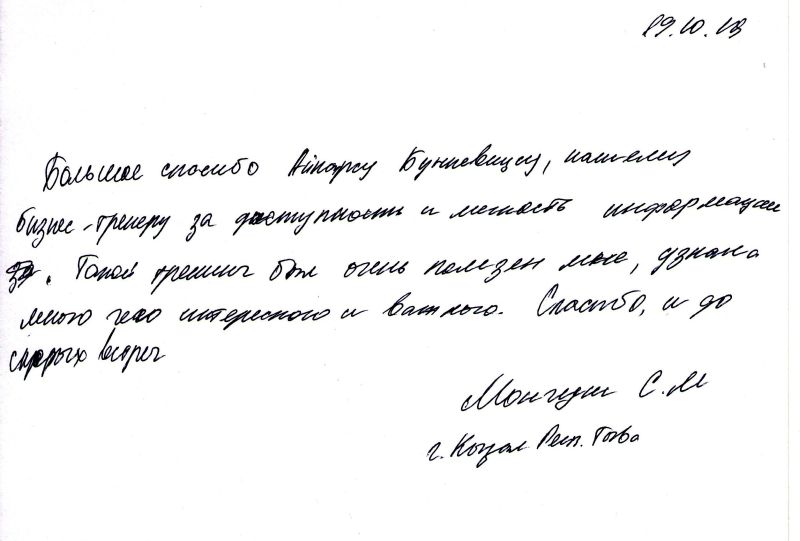 19.10.13
Большое спасибо Айнарсу, нашему
бизнес-тренеру за доступность и ясность информации
За. Такой тренинг был очень полезен мне, узнала
много чего интересного и важного. Спасибо, и до
скорых встреч
Монгуш С. М
г. Кызыл Респ. Тыва